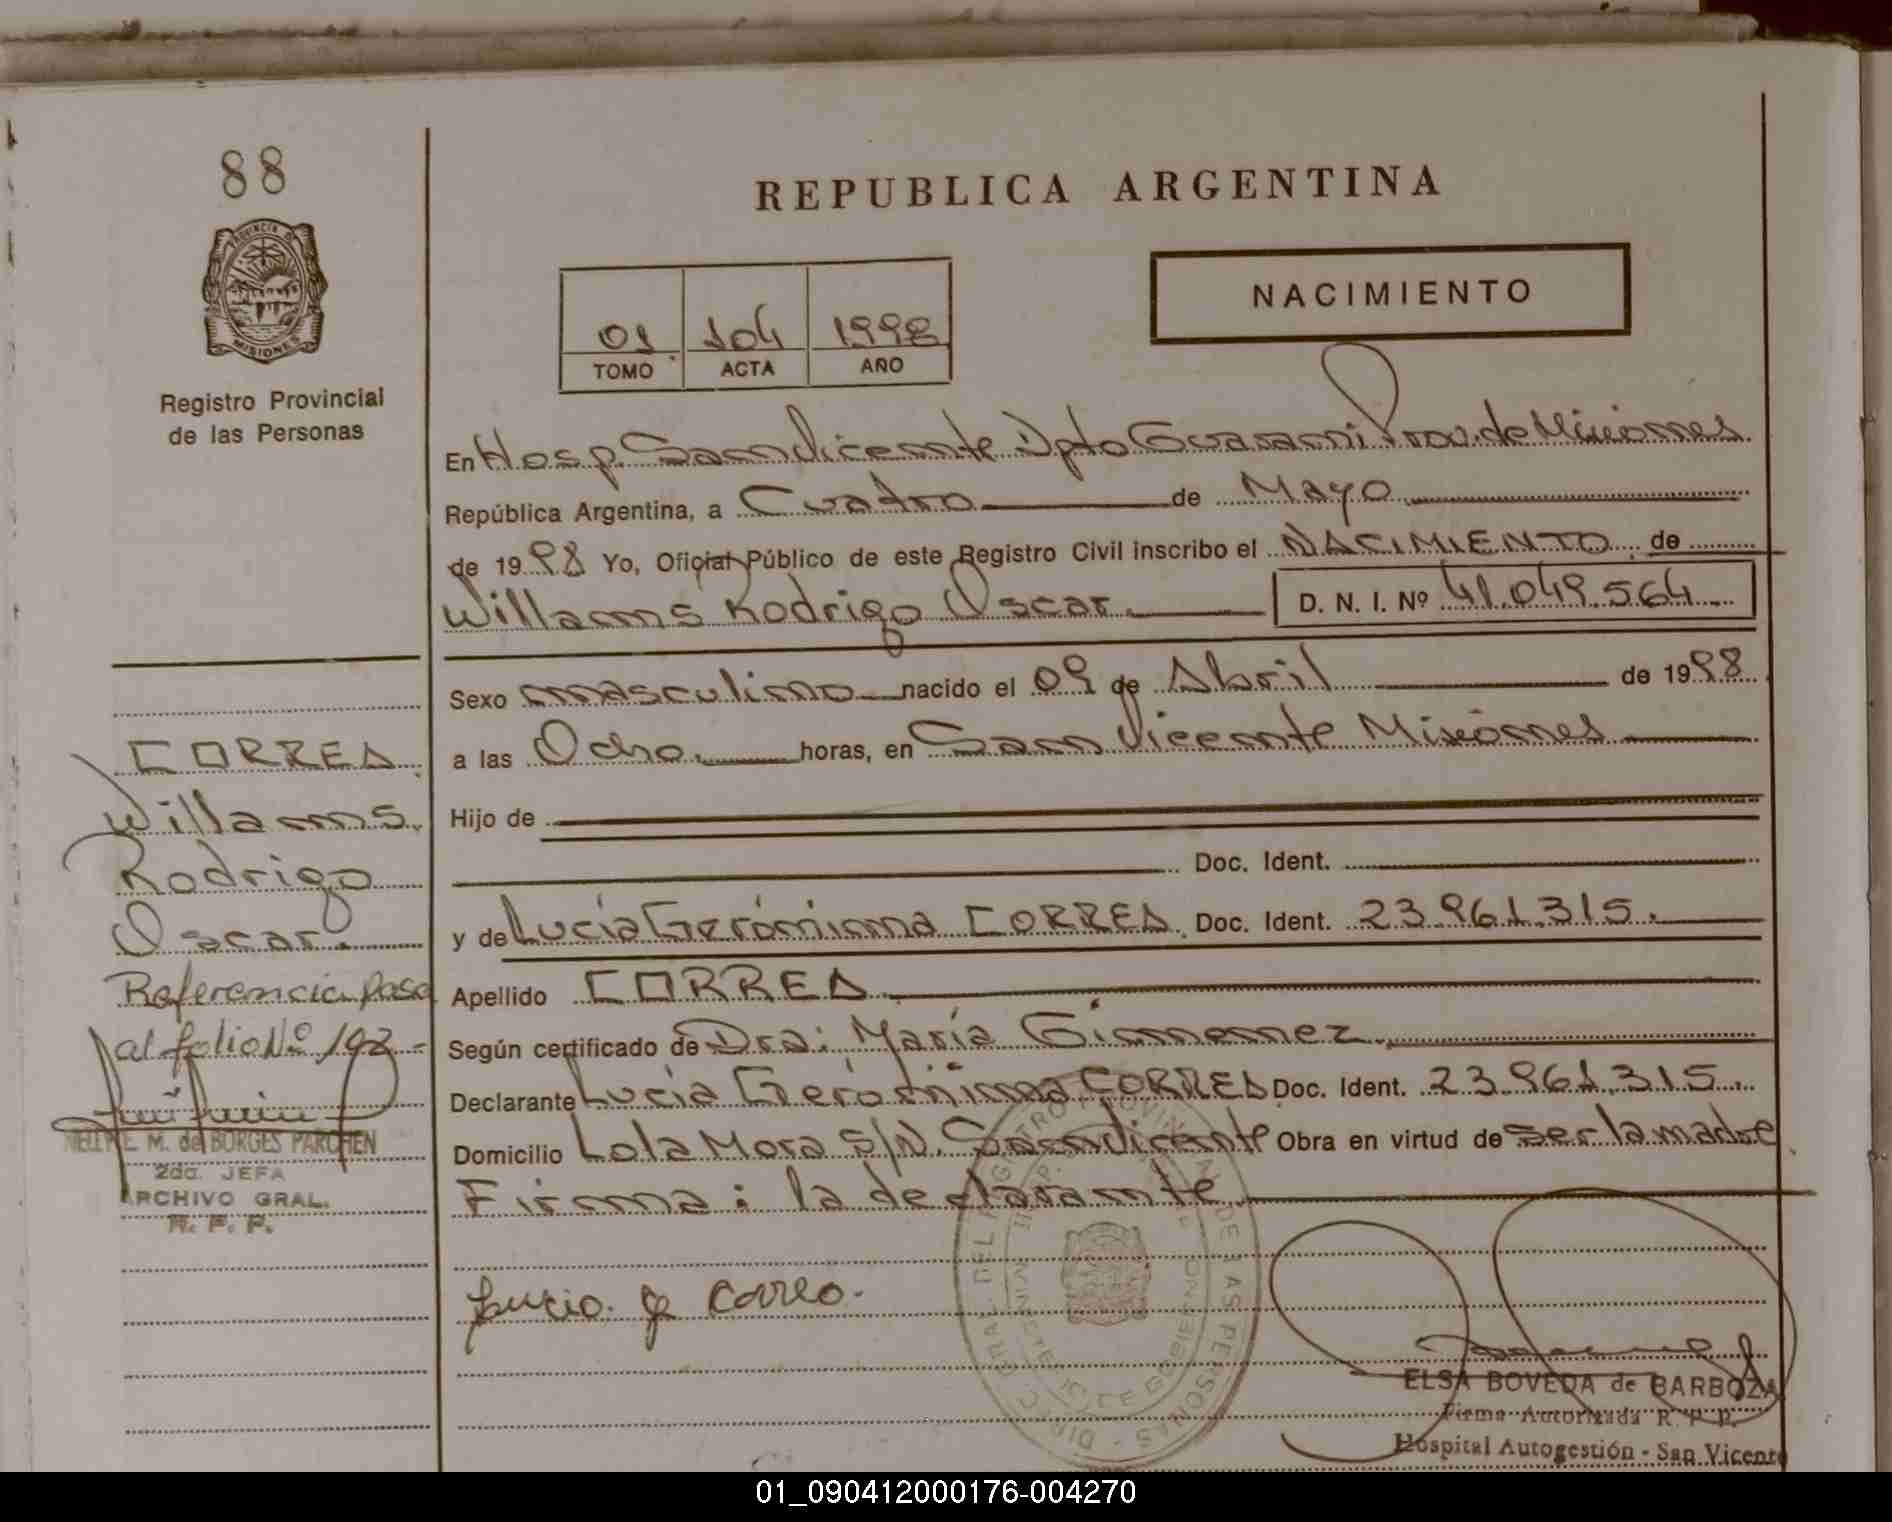 88
PROVINCIA DE
MISIONES
Registro Provincial
de las Personas
REPUBLICA ARGENTINA
NACIMIENTO
01 104 1998
TOMO ACTA AÑO
En Hosp. San Vicente Dpto Guaraní Prov. de Misiones
República Argentina, a Cuatro de Mayo
de 1998 Yo, Oficial Público de este Registro Civil inscribo el NACIMIENTO de
Willams Rodrigo Oscar. D. N. I. Nº 41.049.564
Sexo masculino nacido el 09 de Abril de 1998
a las Ocho. horas, en San Vicente Misiones
Hijo de
Doc. Ident.
y de Lucía Gerónima CORREA. Doc. Ident. 23.961.315.
Apellido CORREA.
Según certificado de Dra: María Gimenez.
Declarante Lucía Gerónima CORREA Doc. Ident. 23.961.315.
Domicilio Lola Mora S/N. San Vicente Obra en virtud de ser la madre
Firma: la declarante.
Lucia. G Correa.
CORREA.
Willams.
Rodrigo
Oscar.
Referencia pasa
al folio Nº 192
M. de BORGES PARCHEN
2da. JEFA
ARCHIVO GRAL.
R. P. P.
ELSA BOVEDA de BARBOZA
Firma Autorizada R. P. P.
Hospital Autogestión - San Vicente
01_090412000176-004270